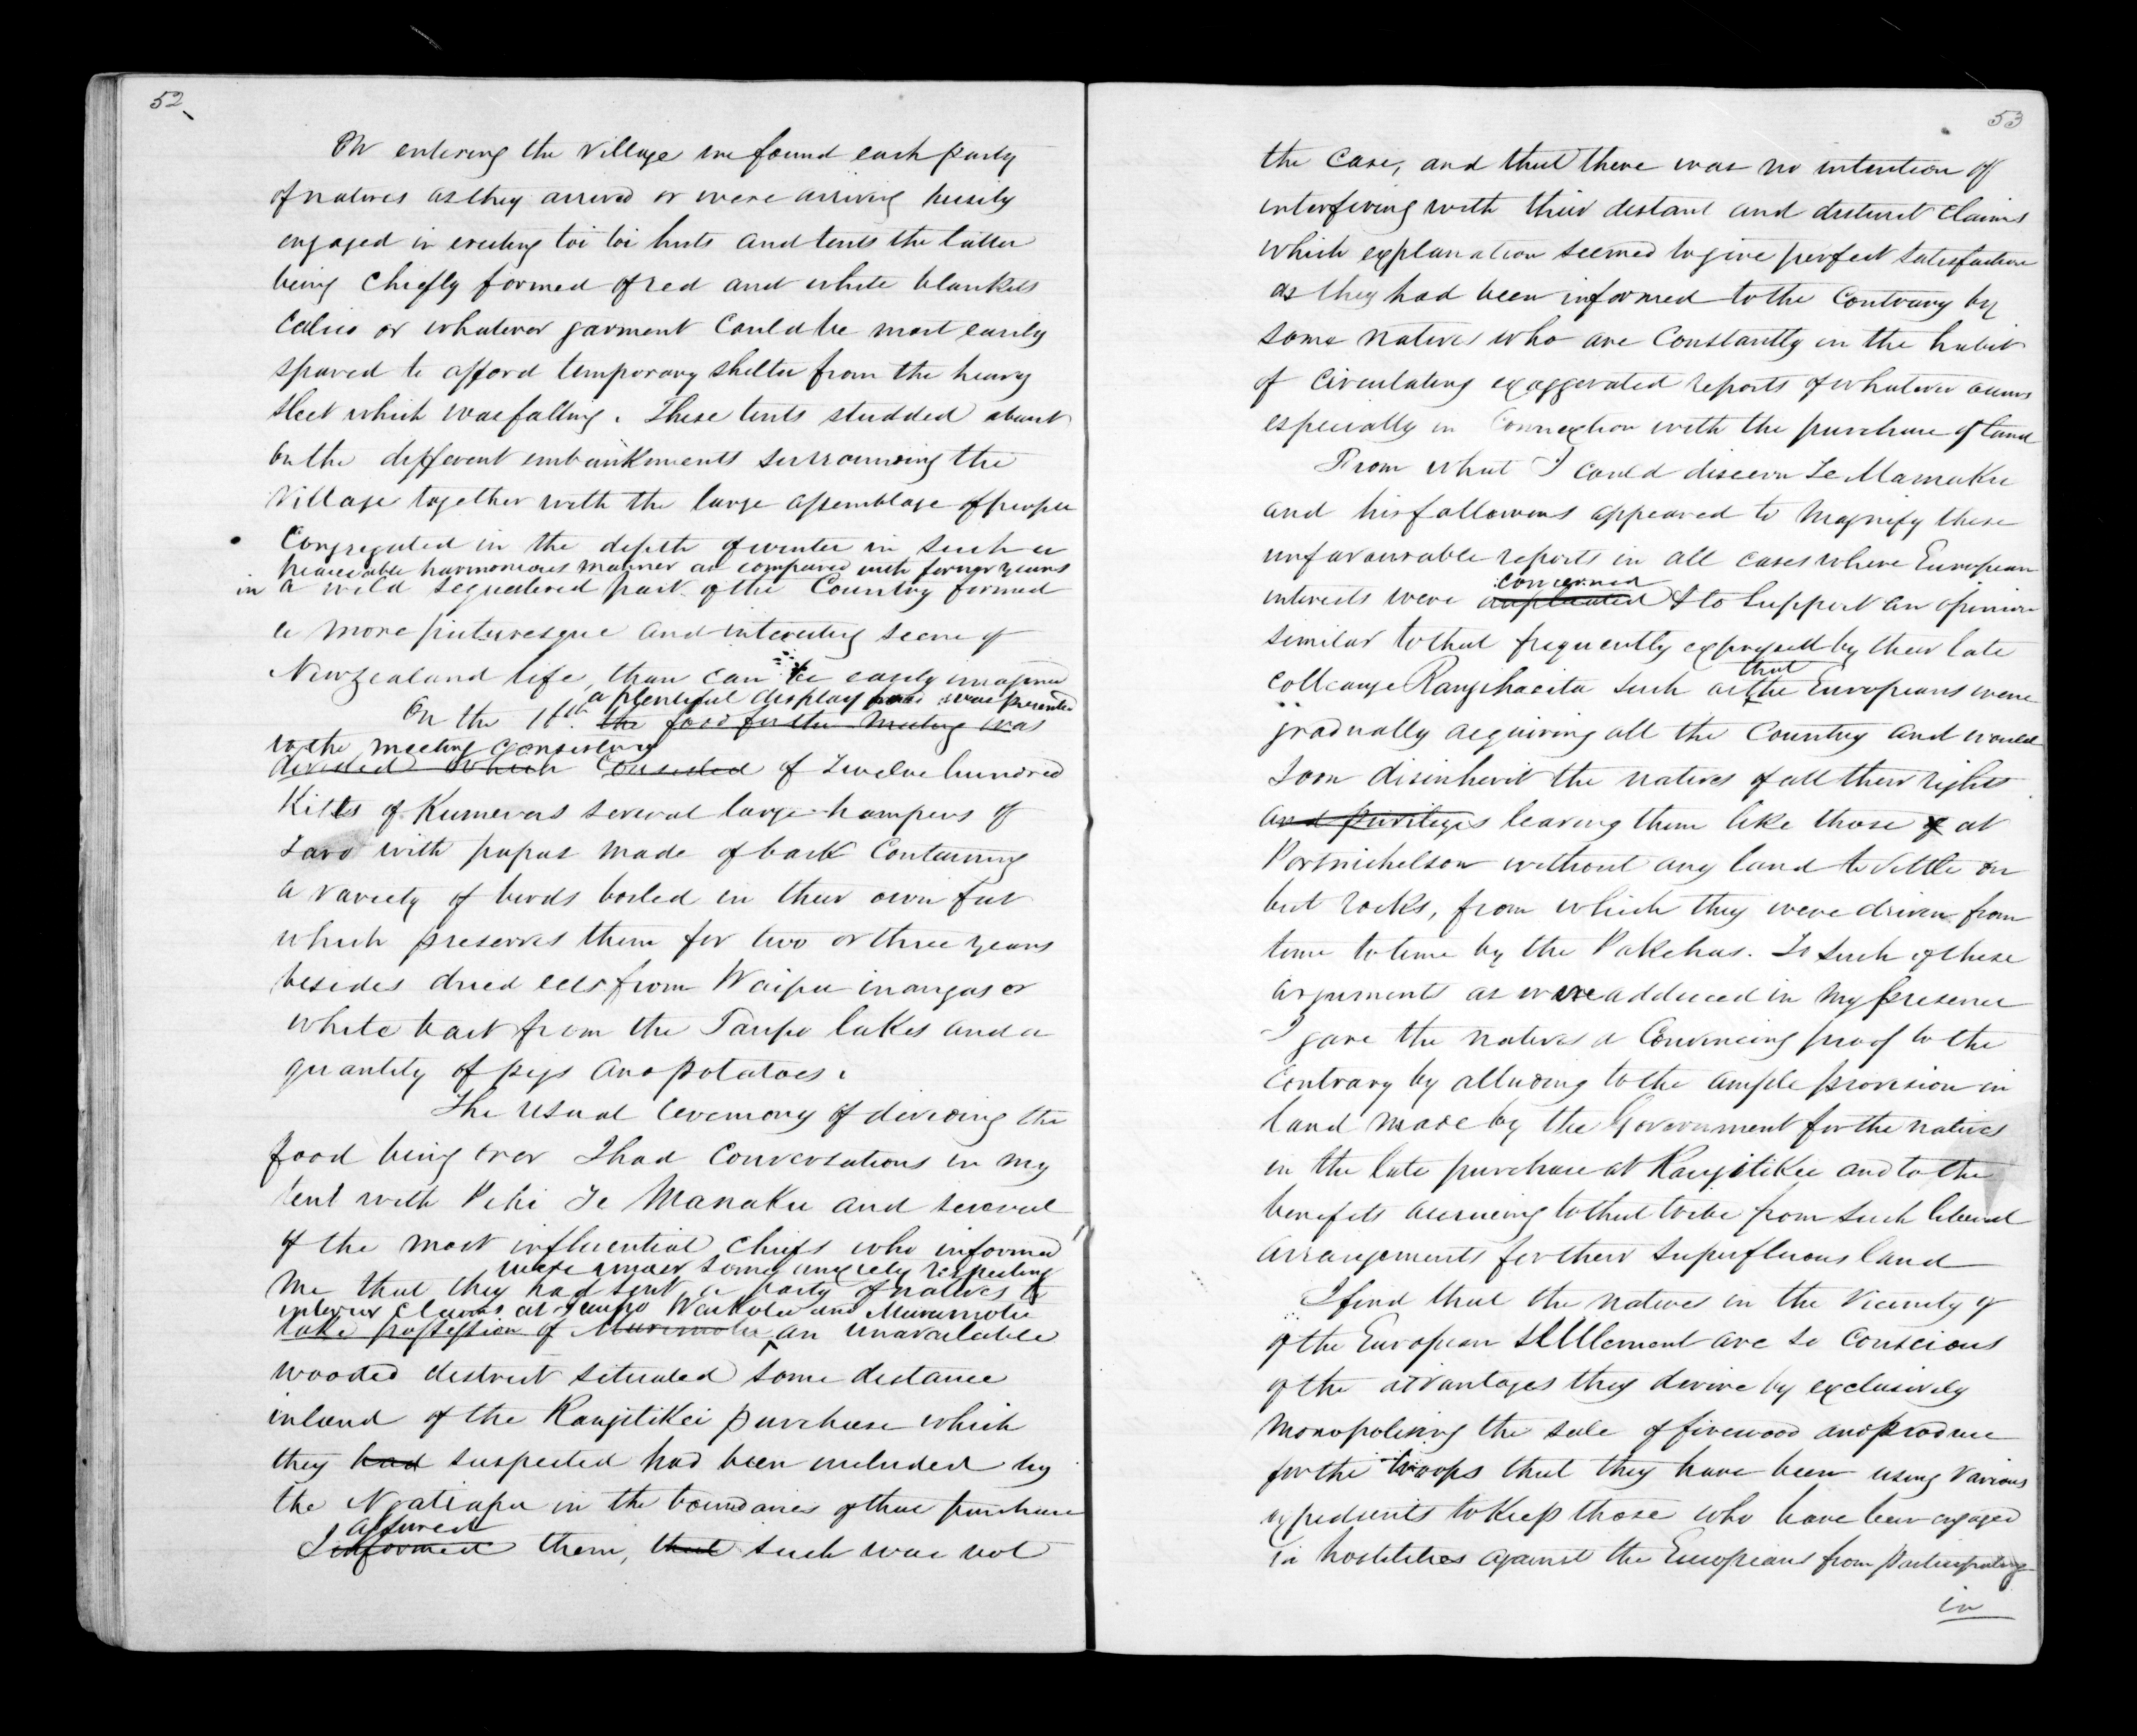 52
On entering the village we found each party
of natives as they arrived or were arriving busily
engaged in erecting toi toi huts and tents the latter
being chiefly formed of red and white blankets
Calico or whatever garment could be most easily
spared to afford temporary shelter from the heavy
sleet which was falling. These tents studded about
on the different embankments surrounding the
Village together with the large assemblage of people
Congregated in the depth of winter in such a
peaceable harmonious manner as compared with former years
in a wild sequestered part of the Country formed
a more picturesque and interesting scene of
Newzealand life, than can be easily imagined
a plentiful display was presented
On the 16th the food for the meeting was
to the meeting consisting
divided which consisted of Twelve hundred
Kitts of Kumeras several large hampers of
Taro with papas made of bark Containing
a variety of birds boiled in their own fat
which preserves them for two or three years
besides dried eels from Waipu inangas or
white bait from the Taupo lakes and a
quantity of pigs and potatoes.
The usual Ceremony of dividing the
food being over I had Conversations in my
tent with Pehi Te Mamaku and several
of the most influential chiefs who informed
were under some anxiety respecting
me that they had sent a party of natives to
their claims at Taupo Waikato and Murimotu
take possession of Murimotu an unavailable
wooded district situated some distance
inland of the Rangitikei purchase which
they had suspected had been included by
the Ngatiapa in the boundaries of that purchase
assured
I informed them, that such was not
53
the case, and that there was no intention of
interfering with their distant and distinct claims
which explanation seemed to give perfect satisfaction
as they had been informed to the Contrary by
some natives who are Constantly in the habit
of Circulating exaggerated reports of whatever occurs
especially in Connexion with the purchase of land
From what I could discern Te Mamaku
and his followers appeared to magnify these
unfavourable reports in all cases where European
concerned
interests were implicated & to support an opinion
similar to that frequently expressed by their late
that
colleauge Rangihaeita such as the Europeans were
gradually acquiring all the Country and would
soon disinherit the natives of all their rights
and privileges leaving them like those of at
Portnichelson without any land to settle on
but rocks, from which they were driven from
time to time by the Pakehas. To such of these
arguments as were adduced in my presence
I gave the natives a Convincing proof to the
Contrary by alluding to the ample provision in
land made by the Government for the natives
in the late purchase at Rangitikei and to the
benefits accrueing to that tribe from such liberal
arrangements for their superfluous land
I find that the natives in the vicinity of
of the European settlement are so conscious
of the advantages they derive by exclusively
monopolising the sale of firewood and produce
for the troops that they have been using various
expedients to keep those who have been engaged
in hostilities against the Europeans from participating
in